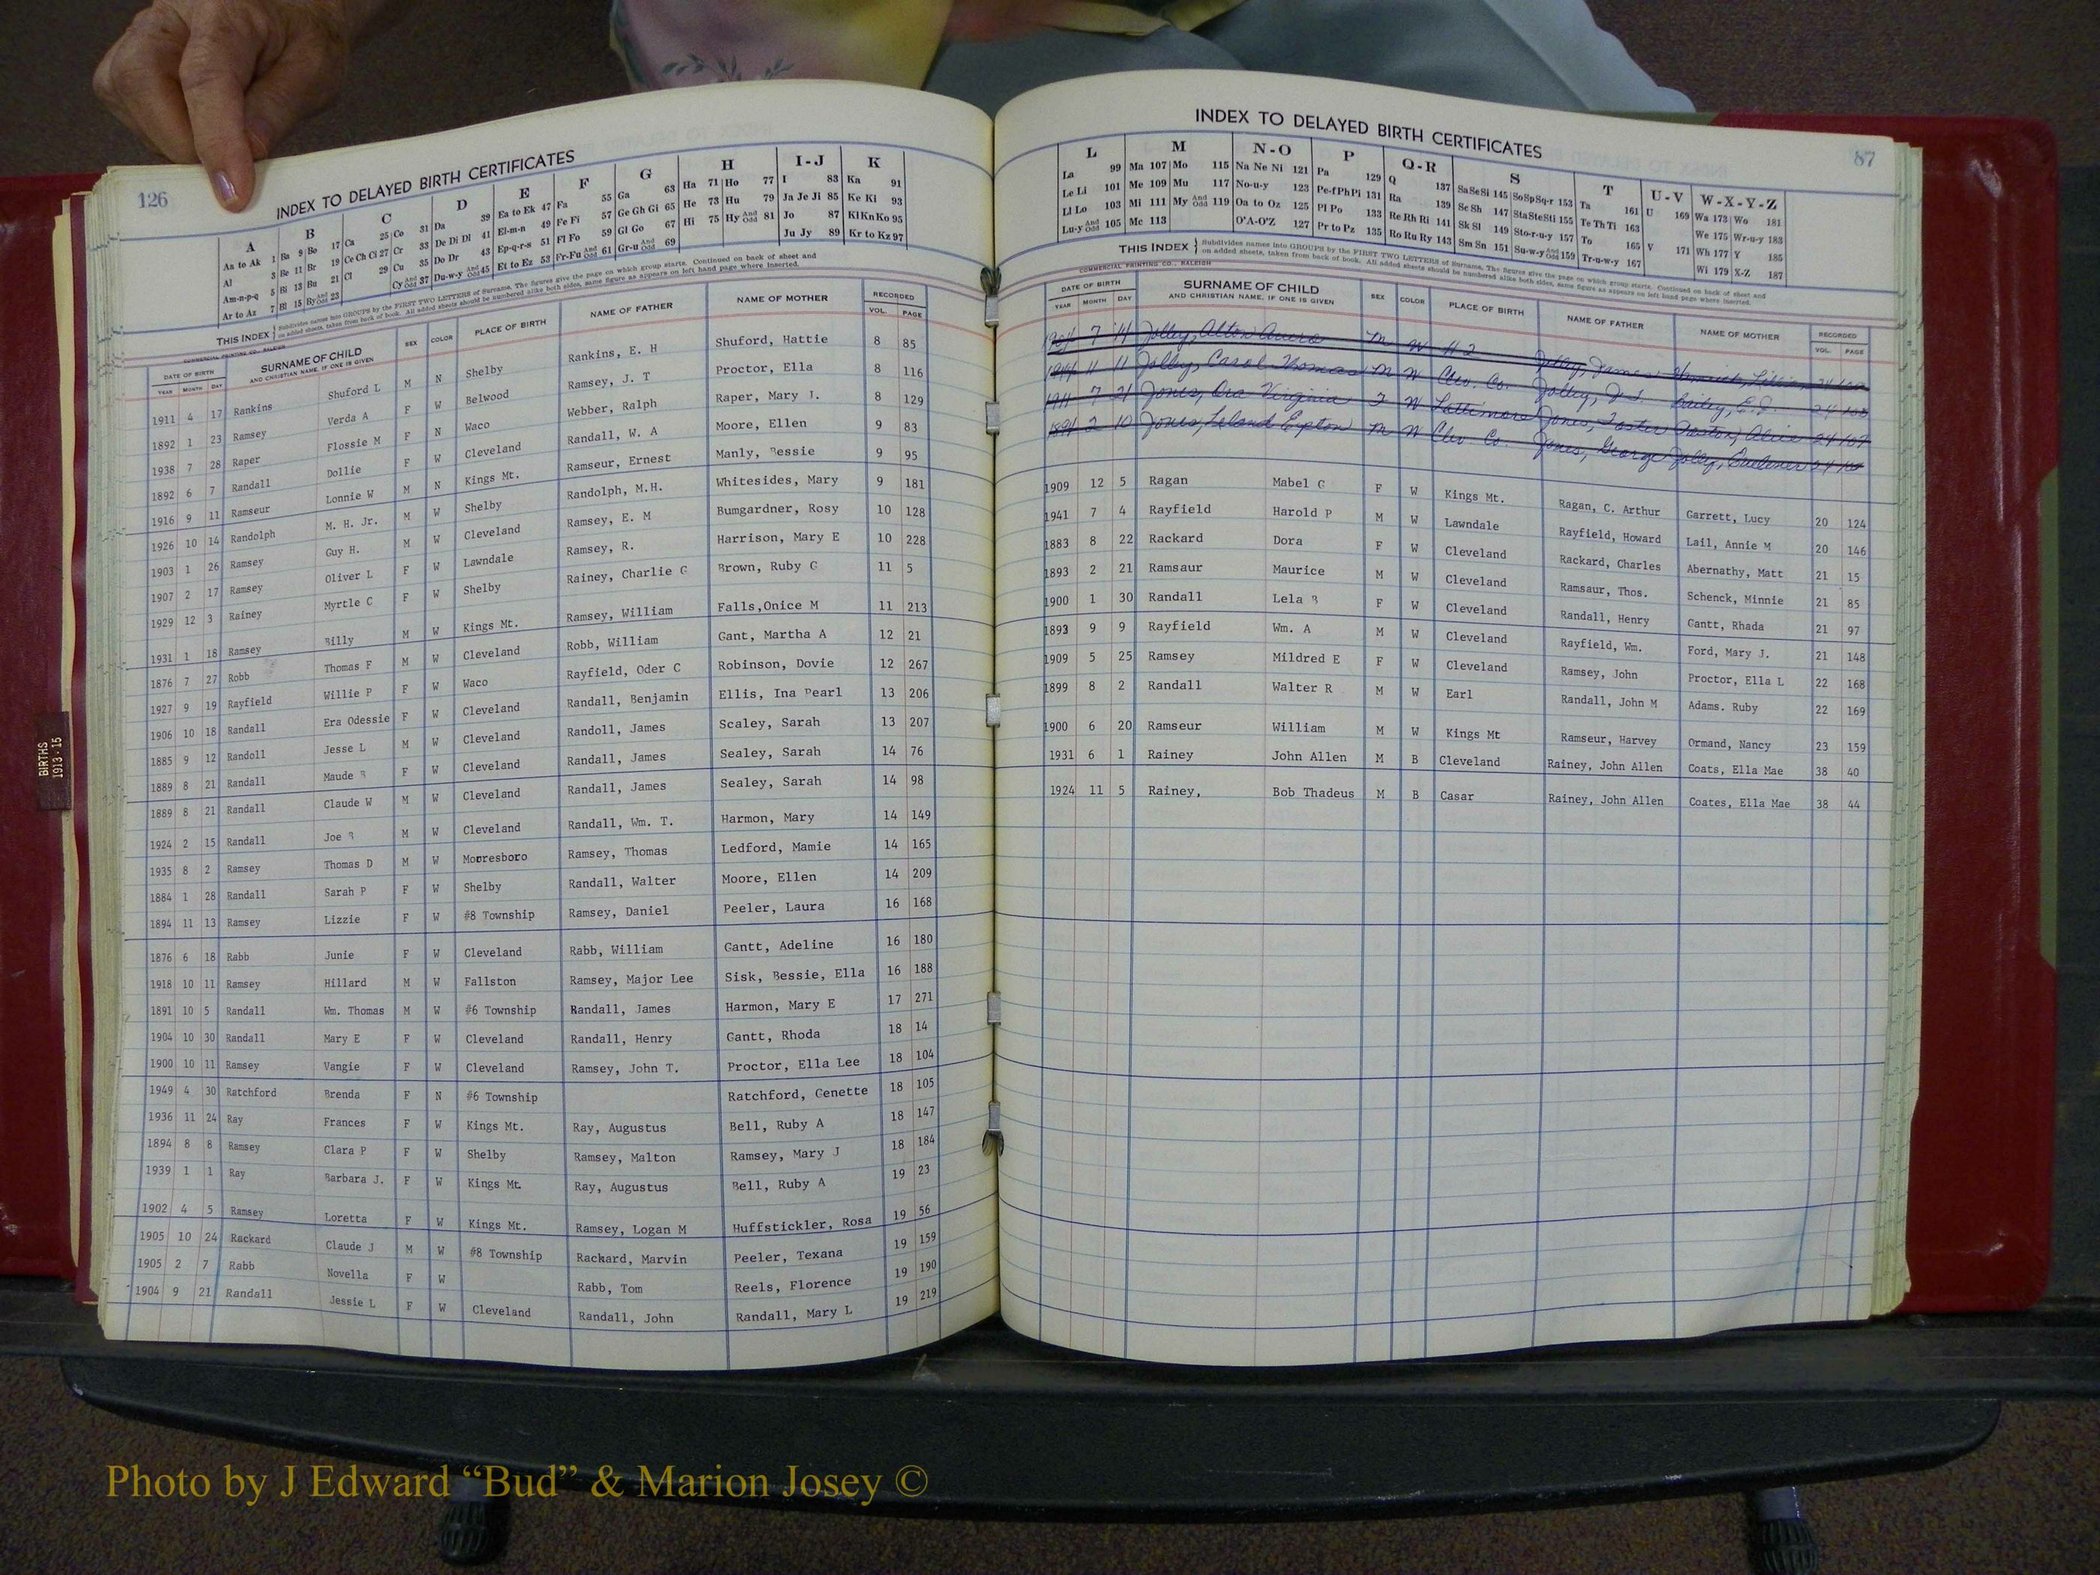 126
INDEX TO DELAYED BIRTH CERTIFICATES
A B C D E F G H I-J K
Aa to Ak 1 Ba 9 Bo 17 Ca 25 Co 31 Da 39 Ea to Ek 47 Fa 55 Ga 63 Ha 71 Ho 77 I 83 Ka 91
Al 3 Be 11 Br 19 Ce Ch Ci 27 Cr 33 De Di Dl 41 El-m-n 49 Fe Fi 57 Ge Gh Gi 65 He 73 Hu 79 Ja Je Ji 85 Ke Ki 93
Am-n-p-q 5 Bi 13 Bu 21 Cl 29 Cu 35 Do Dr 43 Ep-q-r-s 51 Fl Fo 59 Gl Go 67 Hi 75 Hy And Odd 81 Jo 87 Kl Kn Ko 95
Ar to Az 7 Bl 15 By And Odd 23 Cy And Odd 37 Du-w-y And Odd 45 Et to Ez 53 Fr-Fu And Odd 61 Gr-u And Odd 69 Ju Jy 89 Kr to Kz 97
THIS INDEX } Subdivides names into GROUPS by the FIRST TWO LETTERS of Surname. The figures give the page on which group starts. Continued on back of sheet and
on added sheets, taken from back of book. All added sheets should be numbered alike both sides, same figure as appears on left hand page where inserted.
COMMERCIAL PRINTING CO., RALEIGH
DATE OF BIRTH SURNAME OF CHILD SEX COLOR PLACE OF BIRTH NAME OF FATHER NAME OF MOTHER RECORDED
YEAR MONTH DAY AND CHRISTIAN NAME, IF ONE IS GIVEN VOL. PAGE
1911 4 17 Rankins Shuford L M N Shelby Rankins, E. H Shuford, Hattie 8 85
1892 1 23 Ramsey Verda A F W Belwood Ramsey, J. T Proctor, Ella 8 116
1938 7 28 Raper Flossie M F N Waco Webber, Ralph Raper, Mary J. 8 129
1892 6 7 Randall Dollie F W Cleveland Randall, W. A Moore, Ellen 9 83
1916 9 11 Ramseur Lonnie W M N Kings Mt. Ramseur, Ernest Manly, Bessie 9 95
1926 10 14 Randolph M. H. Jr. M W Shelby Randolph, M.H. Whitesides, Mary 9 181
1903 1 26 Ramsey Guy H. M W Cleveland Ramsey, E. M Bumgardner, Rosy 10 128
1907 2 17 Ramsey Oliver L F W Lawndale Ramsey, R. Harrison, Mary E 10 228
1929 12 3 Rainey Myrtle C F W Shelby Rainey, Charlie G Brown, Ruby G 11 5
1931 1 18 Ramsey Billy M W Kings Mt. Ramsey, William Falls,Onice M 11 213
1876 7 27 Robb Thomas F M W Cleveland Robb, William Gant, Martha A 12 21
1927 9 19 Rayfield Willie P F W Waco Rayfield, Oder C Robinson, Dovie 12 267
1906 10 18 Randall Era Odessie F W Cleveland Randall, Benjamin Ellis, Ina Pearl 13 206
1885 9 12 Randoll Jesse L M W Cleveland Randoll, James Scaley, Sarah 13 207
1889 8 21 Randall Maude B F W Cleveland Randall, James Sealey, Sarah 14 76
1889 8 21 Randall Claude W M W Cleveland Randall, James Sealey, Sarah 14 98
1924 2 15 Randall Joe B M W Cleveland Randall, Wm. T. Harmon, Mary 14 149
1935 8 2 Ramsey Thomas D M W Mooresboro Ramsey, Thomas Ledford, Mamie 14 165
1884 1 28 Randall Sarah P F W Shelby Randall, Walter Moore, Ellen 14 209
1894 11 13 Ramsey Lizzie F W #8 Township Ramsey, Daniel Peeler, Laura 16 168
1876 6 18 Rabb Junie F W Cleveland Rabb, William Gantt, Adeline 16 180
1918 10 11 Ramsey Hillard M W Fallston Ramsey, Major Lee Sisk, Bessie, Ella 16 188
1891 10 5 Randall Wm. Thomas M W #6 Township Randall, James Harmon, Mary E 17 271
1904 10 30 Randall Mary E F W Cleveland Randall, Henry Gantt, Rhoda 18 14
1900 10 11 Ramsey Vangie F W Cleveland Ramsey, John T. Proctor, Ella Lee 18 104
1949 4 30 Ratchford Brenda F N #6 Township Ratchford, Genette 18 105
1936 11 24 Ray Frances F W Kings Mt. Ray, Augustus Bell, Ruby A 18 147
1894 8 8 Ramsey Clara P F W Shelby Ramsey, Malton Ramsey, Mary J 18 184
1939 1 1 Ray Barbara J. F W Kings Mt. Ray, Augustus Bell, Ruby A 19 23
1902 4 5 Ramsey Loretta F W Kings Mt. Ramsey, Logan M Huffstickler, Rosa 19 56
1905 10 24 Rackard Claude J M W #8 Township Rackard, Marvin Peeler, Texana 19 159
1905 2 7 Rabb Novella F W Rabb, Tom Reels, Florence 19 190
1904 9 21 Randall Jessie L F W Cleveland Randall, John Randall, Mary L 19 219
BIRTHS
1913-15
87
INDEX TO DELAYED BIRTH CERTIFICATES
L M N-O P Q-R S T U-V W-X-Y-Z
La 99 Ma 107 Mo 115 Na Ne Ni 121 Pa 129 Q 137 Sa Se Si 145 So Sp Sq-r 153 Ta 161 U 169 Wa 173 Wo 181
Le Li 101 Me 109 Mu 117 No-u-y 123 Pe-f Ph Pi 131 Ra 139 Sc Sh 147 Sta Ste Sti 155 Te Th Ti 163 We 175 Wr-u-y 183
Ll Lo 103 Mi 111 My And Odd 119 Oa to Oz 125 Pl Po 133 Re Rh Ri 141 Sk Sl 149 Sto-r-u-y 157 To 165 V 171 Wh 177 Y 185
Lu-y And Odd 105 Mc 113 O'A-O'Z 127 Pr to Pz 135 Ro Ru Ry 143 Sm Sn 151 Su-w-y And Odd 159 Tr-u-w-y 167 Wi 179 X-Z 187
THIS INDEX } Subdivides names into GROUPS by the FIRST TWO LETTERS of Surname. The figures give the page on which group starts. Continued on back of sheet and
on added sheets, taken from back of book. All added sheets should be numbered alike both sides, same figure as appears on left hand page where inserted.
COMMERCIAL PRINTING CO., RALEIGH
DATE OF BIRTH SURNAME OF CHILD SEX COLOR PLACE OF BIRTH NAME OF FATHER NAME OF MOTHER RECORDED
YEAR MONTH DAY AND CHRISTIAN NAME, IF ONE IS GIVEN VOL. PAGE
7 14 Jolley, Alton M W # 2 Jolley, James
11 11 Jolley, Carol Thomas M W Clev. Co. Jolley, Bailey, 24
7 21 Jones, Ora Virginia F W Lattimore Jones, Foster Alice 24 107
1891 2 10 Jones, Leland Epton M W Clev Co. Jones, George Jolley, 24
1909 12 5 Ragan Mabel G F W Kings Mt. Ragan, C. Arthur Garrett, Lucy 20 124
1941 7 4 Rayfield Harold P M W Lawndale Rayfield, Howard Lail, Annie M 20 146
1883 8 22 Rackard Dora F W Cleveland Rackard, Charles Abernathy, Matt 21 15
1893 2 21 Ramsaur Maurice M W Cleveland Ramsaur, Thos. Schenck, Minnie 21 85
1900 1 30 Randall Lela B F W Cleveland Randall, Henry Gantt, Rhada 21 97
1893 9 9 Rayfield Wm. A M W Cleveland Rayfield, Wm. Ford, Mary J. 21 148
1909 5 25 Ramsey Mildred E F W Cleveland Ramsey, John Proctor, Ella L 22 168
1899 8 2 Randall Walter R M W Earl Randall, John M Adams. Ruby 22 169
1900 6 20 Ramseur William M W Kings Mt Ramseur, Harvey Ormand, Nancy 23 159
1931 6 1 Rainey John Allen M B Cleveland Rainey, John Allen Coats, Ella Mae 38 40
1924 11 5 Rainey, Bob Thadeus M B Casar Rainey, John Allen Coates, Ella Mae 38 44
Photo by J Edward “Bud” & Marion Josey ©